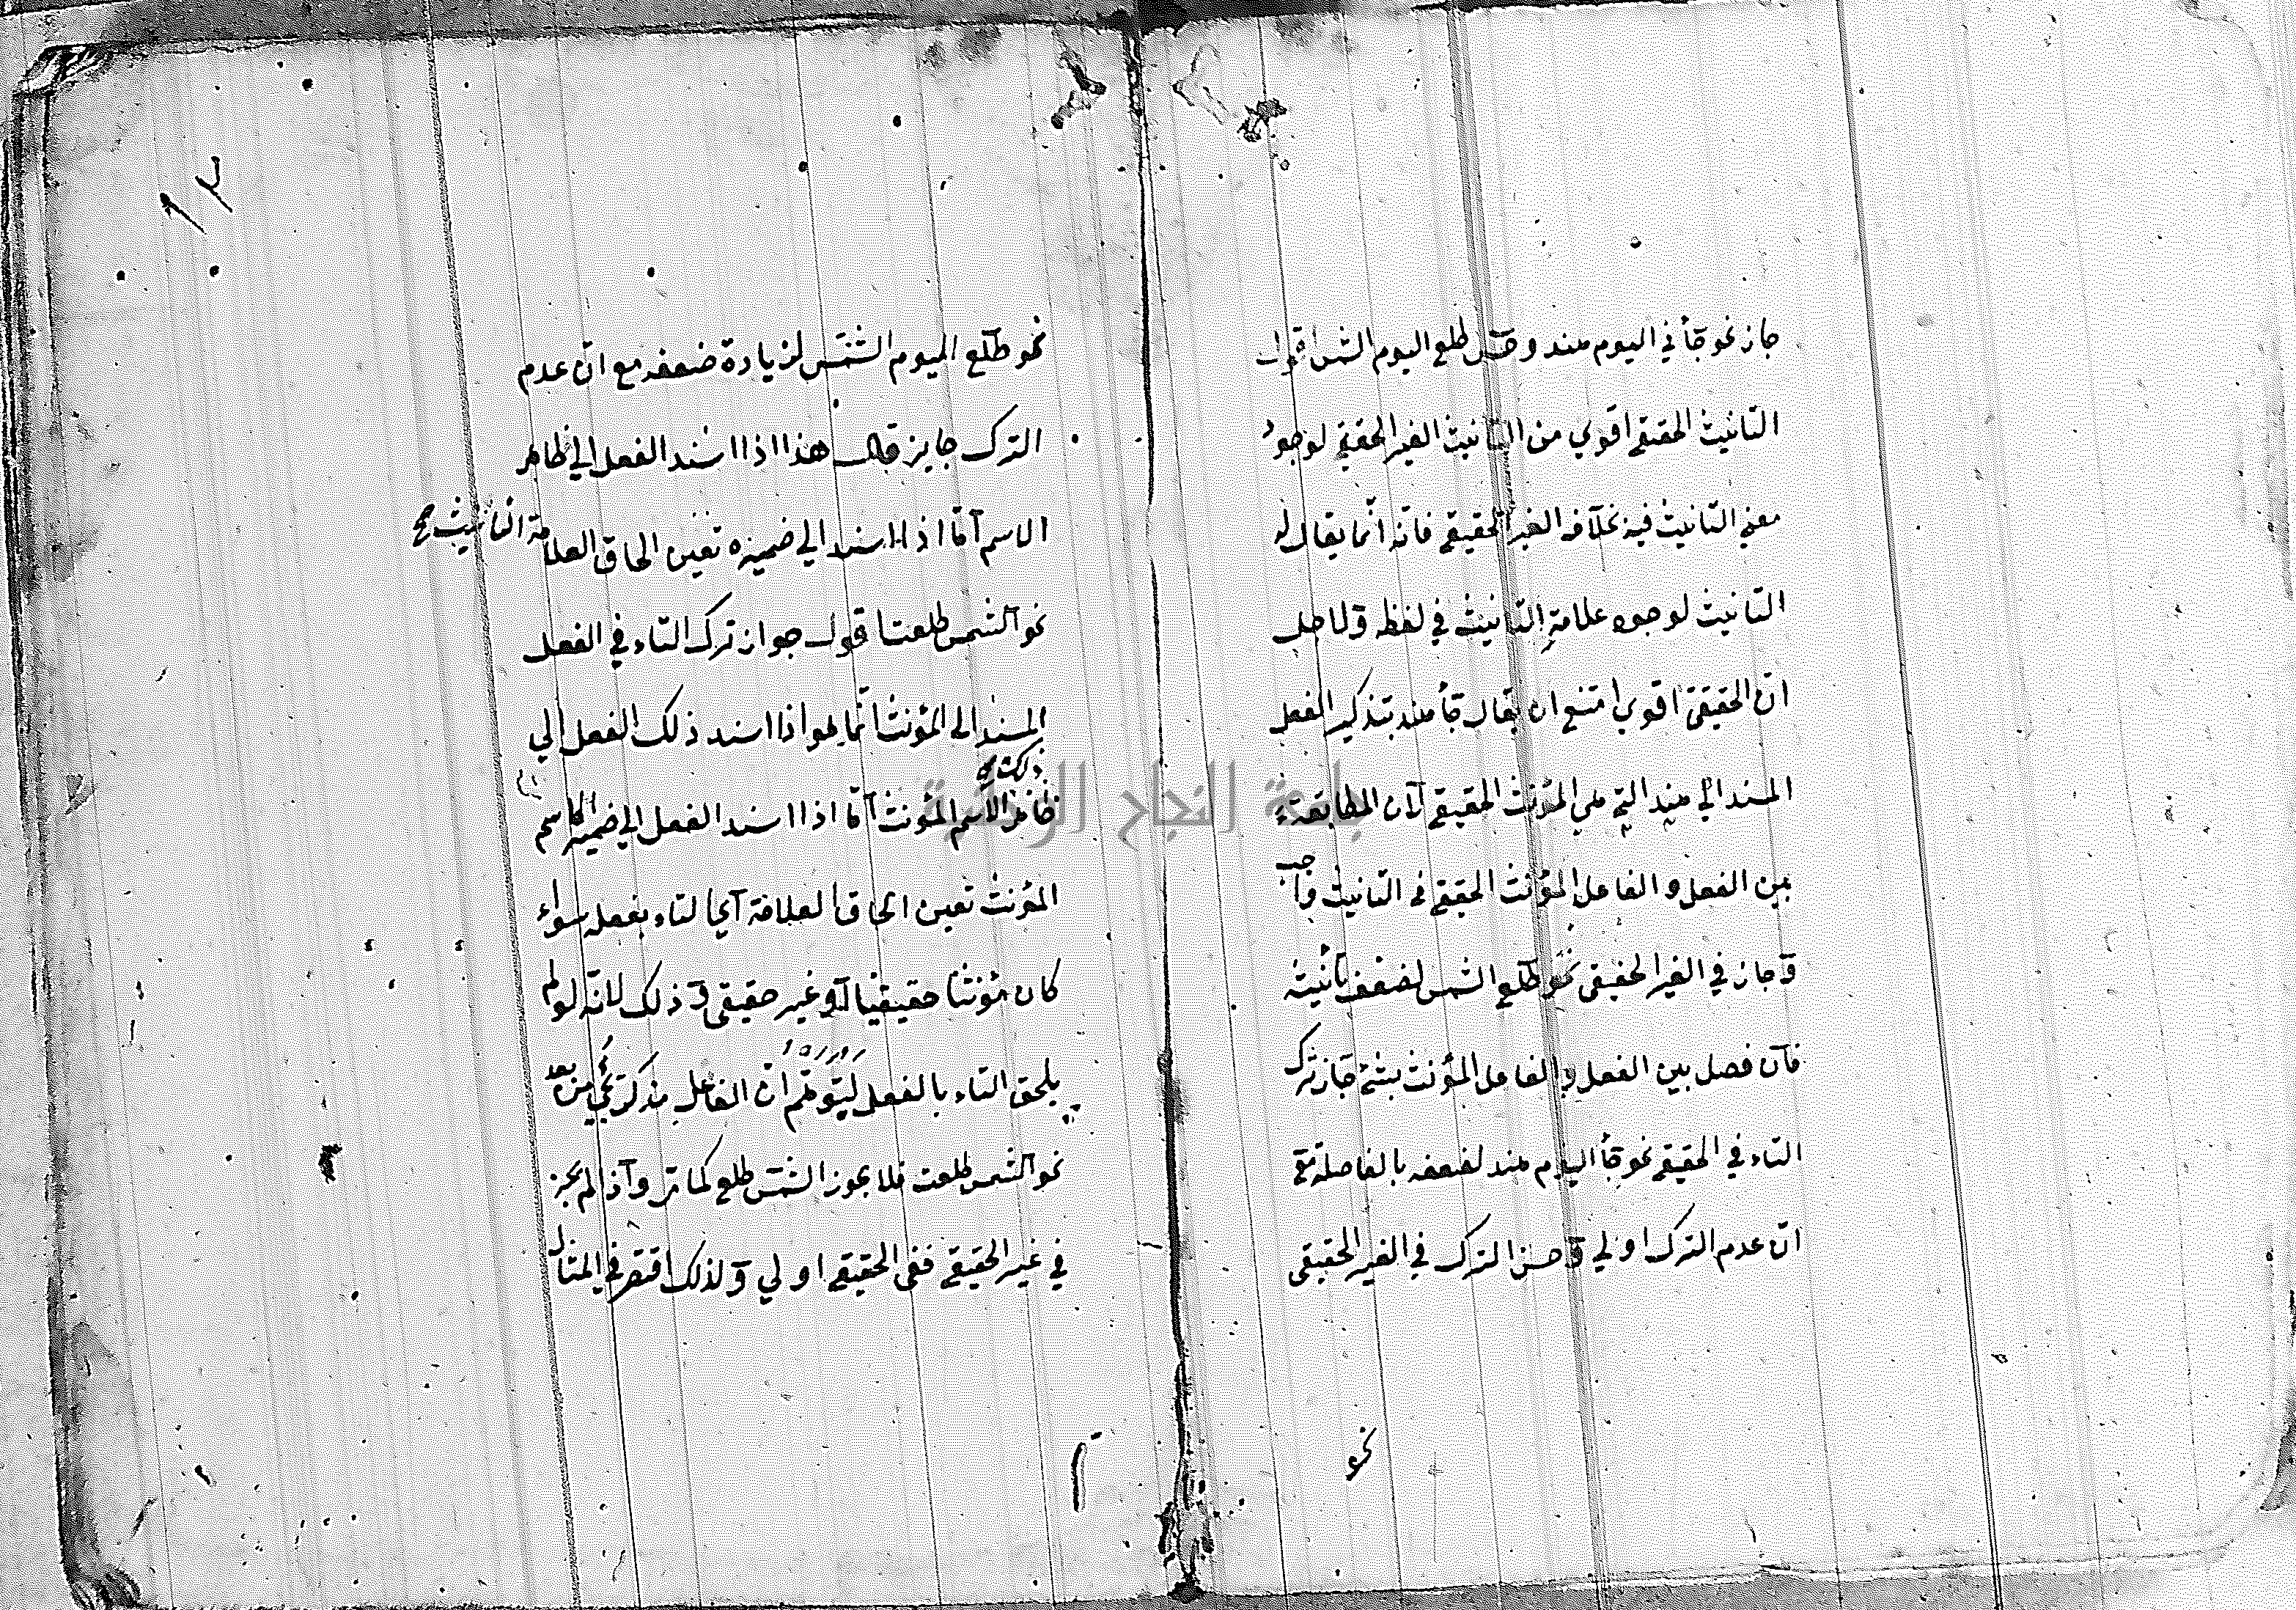 جاز نحو جأني اليوم هند وحسن طلع اليوم الشمس اقول
التانيث الحقيقي اقوي من التانيث الغير الحقيقي لوجود
معني التانيث فيه بخلاف الغير الحقيقي فانه انما يقال له
التانيث لوجود علامة التانيث في لفظه ولما حصل
ان الحقيقي اقوي امتنع ان يقال جأ هند بتذكير الفعل
المسند الي هند التي هي المؤنث الحقيقي لان المطابقة
بين الفعل والفاعل المؤنث الحقيقي في التانيث واجب
وجاز في الغير الحقيقي نحو طلع الشمس لضعف تأنيثه
فان فصل بين الفعل والفاعل المؤنث بشئ جاز ترك
التاء في الحقيقي نحو جأ اليوم هند لضعفه بالفاصلة مع
ان عدم الترك اولي وحسن الترك في الغير الحقيقي
نحو
١٣
نحو طلع اليوم الشمس لزيادة ضعفه مع ان عدم
الترك جايز قال هذا اذا اسند الفعل الي ظاهر
الاسم اما اذا اسند الي ضميره تعين الحاق العلامة التانيث صح
نحو الشمس طلعت اقول جواز ترك التاء في الفعل
المسند الي المؤنث انما هو اذا اسند ذلك الفعل الي
ظاهر الاسم المؤنث اما اذا اسند الفعل الي ضمير الاسم
المؤنث تعين الحاق العلامة اي التاء بفعله سواء
كان مؤنثا حقيقيا او غير حقيقي وذلك لانه لو لم
يلحق التاء بالفعل ليتوهم ان الفاعل مذكر يجئ من بعد
نحو الشمس طلعت فلا يجوز الشمس طلع كما مر واذا لم يجز
في غير الحقيقي ففي الحقيقي اولي ولذلك اقتصر في المثال
جامعة النجاح الوطنية